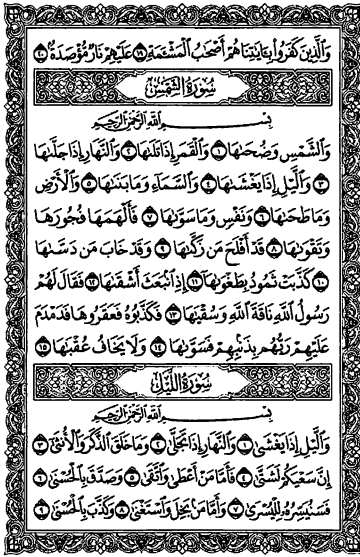 وَالَّذِينَ كَفَرُوا بِآيَاتِنَا هُمْ أَصْحَابُ الْمَشْأَمَةِ ۝١٩ عَلَيْهِمْ نَارٌ مُّؤْصَدَةٌ ۝٢٠
سُورَةُ الشَّمْسِ
بِسْمِ اللَّهِ الرَّحْمَٰنِ الرَّحِيمِ
وَالشَّمْسِ وَضُحَاهَا ۝١ وَالْقَمَرِ إِذَا تَلَاهَا ۝٢ وَالنَّهَارِ إِذَا جَلَّاهَا
۝٣ وَاللَّيْلِ إِذَا يَغْشَاهَا ۝٤ وَالسَّمَاءِ وَمَا بَنَاهَا ۝٥ وَالْأَرْضِ
وَمَا طَحَاهَا ۝٦ وَنَفْسٍ وَمَا سَوَّاهَا ۝٧ فَأَلْهَمَهَا فُجُورَهَا
وَتَقْوَاهَا ۝٨ قَدْ أَفْلَحَ مَن زَكَّاهَا ۝٩ وَقَدْ خَابَ مَن دَسَّاهَا
۝١٠ كَذَّبَتْ ثَمُودُ بِطَغْوَاهَا ۝١١ إِذِ انبَعَثَ أَشْقَاهَا ۝١٢ فَقَالَ لَهُمْ
رَسُولُ اللَّهِ نَاقَةَ اللَّهِ وَسُقْيَاهَا ۝١٣ فَكَذَّبُوهُ فَعَقَرُوهَا فَدَمْدَمَ
عَلَيْهِمْ رَبُّهُم بِذَنبِهِمْ فَسَوَّاهَا ۝١٤ وَلَا يَخَافُ عُقْبَاهَا ۝١٥
سُورَةُ اللَّيْلِ
بِسْمِ اللَّهِ الرَّحْمَٰنِ الرَّحِيمِ
وَاللَّيْلِ إِذَا يَغْشَىٰ ۝١ وَالنَّهَارِ إِذَا تَجَلَّىٰ ۝٢ وَمَا خَلَقَ الذَّكَرَ وَالْأُنثَىٰ ۝٣
إِنَّ سَعْيَكُمْ لَشَتَّىٰ ۝٤ فَأَمَّا مَنْ أَعْطَىٰ وَاتَّقَىٰ ۝٥ وَصَدَّقَ بِالْحُسْنَىٰ ۝٦
فَسَنُيَسِّرُهُ لِلْيُسْرَىٰ ۝٧ وَأَمَّا مَن بَخِلَ وَاسْتَغْنَىٰ ۝٨ وَكَذَّبَ بِالْحُسْنَىٰ ۝٩